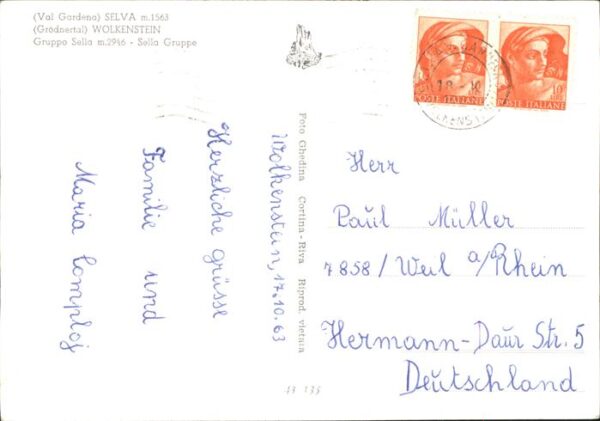 (Val Gardena) SELVA m.1563
(Grödnertal) WOLKENSTEIN
Gruppo Sella m.2946 - Sella Gruppe
Wolkenstein, 17.10.63
Herzliche grüsse
Familie und
Maria Comploj
Foto Ghedina Cortina-Riva Riprod. vietata
10
POSTE ITALIANE
10
POSTE ITALIANE
Herr
Paul Müller
7858/Weil a/Rhein
Hermann-Daur Str. 5
Deutschland